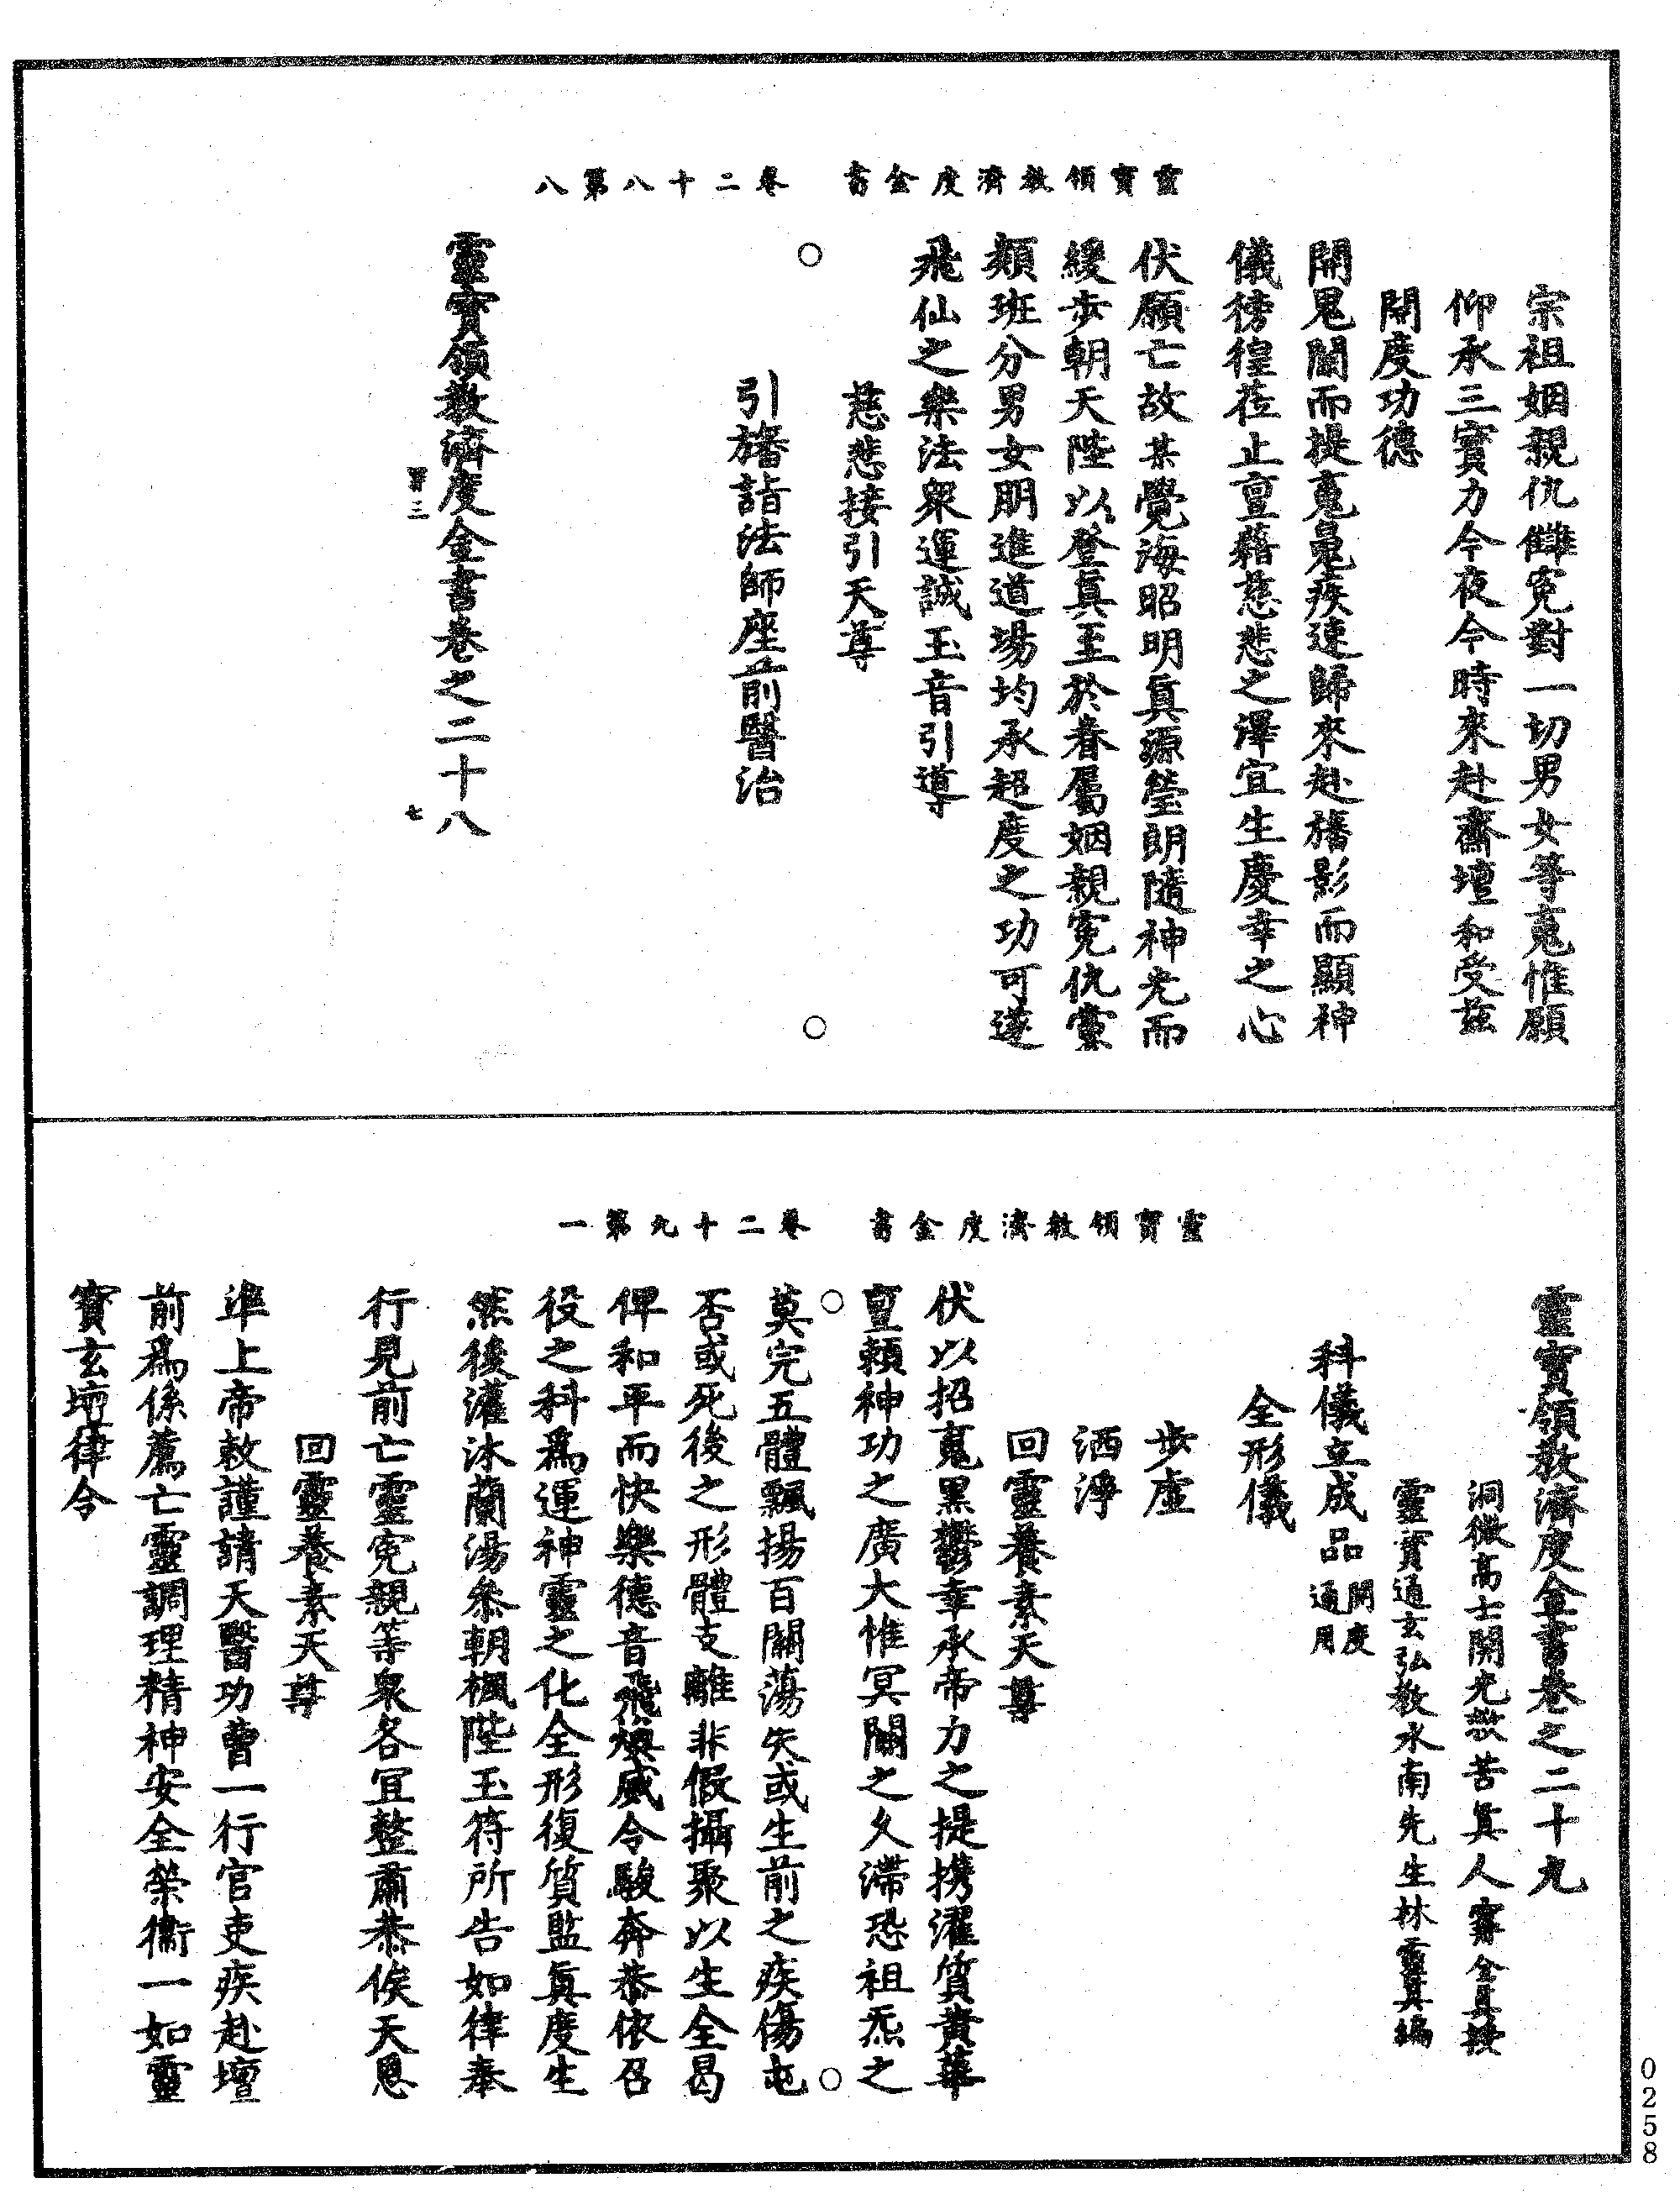 靈寶領教濟度金書　卷二十八第八
宗祖姻親仇讎冤對一切男女等䰟惟願
仰承三寶力今夜今時來赴齋壇和受兹
開度功德
開鬼關而提䰟鬼疾速歸來赴旛影而顯神
儀徬徨莅止亶藉慈悲之澤宜生慶幸之心
伏願亡故某覺海昭明眞源瑩朗隨神光而
緩步朝天陛以登眞至於眷屬姻親冤仇黨
類班分男女朋進道場均承超度之功可遂
飛仙之樂法衆運誠玉音引導
慈悲接引天尊
引旛詣法師座前醫治
靈寶領教濟度金書卷之二十八
三
七
靈寶領教濟度金書　卷二十九第一
靈寶領教濟度金書卷之二十九
洞微高士開光救苦眞人甯全眞授
靈寶通玄弘教水南先生林靈眞編
科儀立成品開度通用
全形儀
步虛
洒淨
回靈養素天尊
伏以招䰟黑鬱幸承帝力之提携濯質黄華
亶頼神功之廣大惟冥關之久滯恐祖炁之
莫完五體飄揚百關蕩失或生前之疾傷屯
否或死後之形體支離非假攝聚以生全曷
俾和平而快樂德音飛煥威令駿奔恭依召
役之科爲運神靈之化全形復質監眞度生
然後灌沐蘭湯叅朝楓陛玉符所告如律奉
行見前亡靈冤親等衆各冝整肅恭俟天恩
回靈養素天尊
準上帝敕謹請天醫功曹一行官吏疾赴壇
前爲係薦亡靈調理精神安全榮衞一如靈
寶玄壇律令
0258